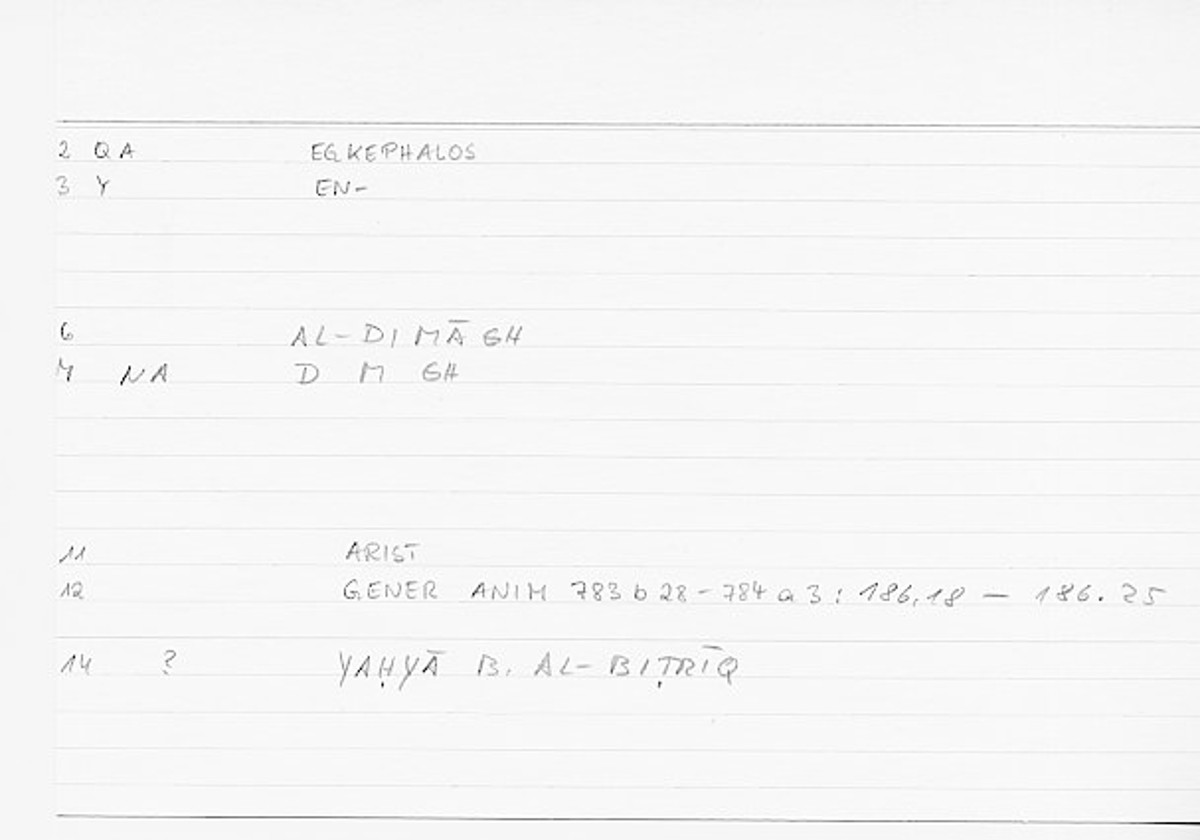 2 QA EGKEPHALOS
3 Y EN-
6 AL-DIMĀGH
7 NA D M GH
11 ARIST
12 GENER ANIM 783 b 28 - 784 a 3 : 186,18 — 186.25
14 ? YAḤYĀ B. AL-BIṬRĪQ